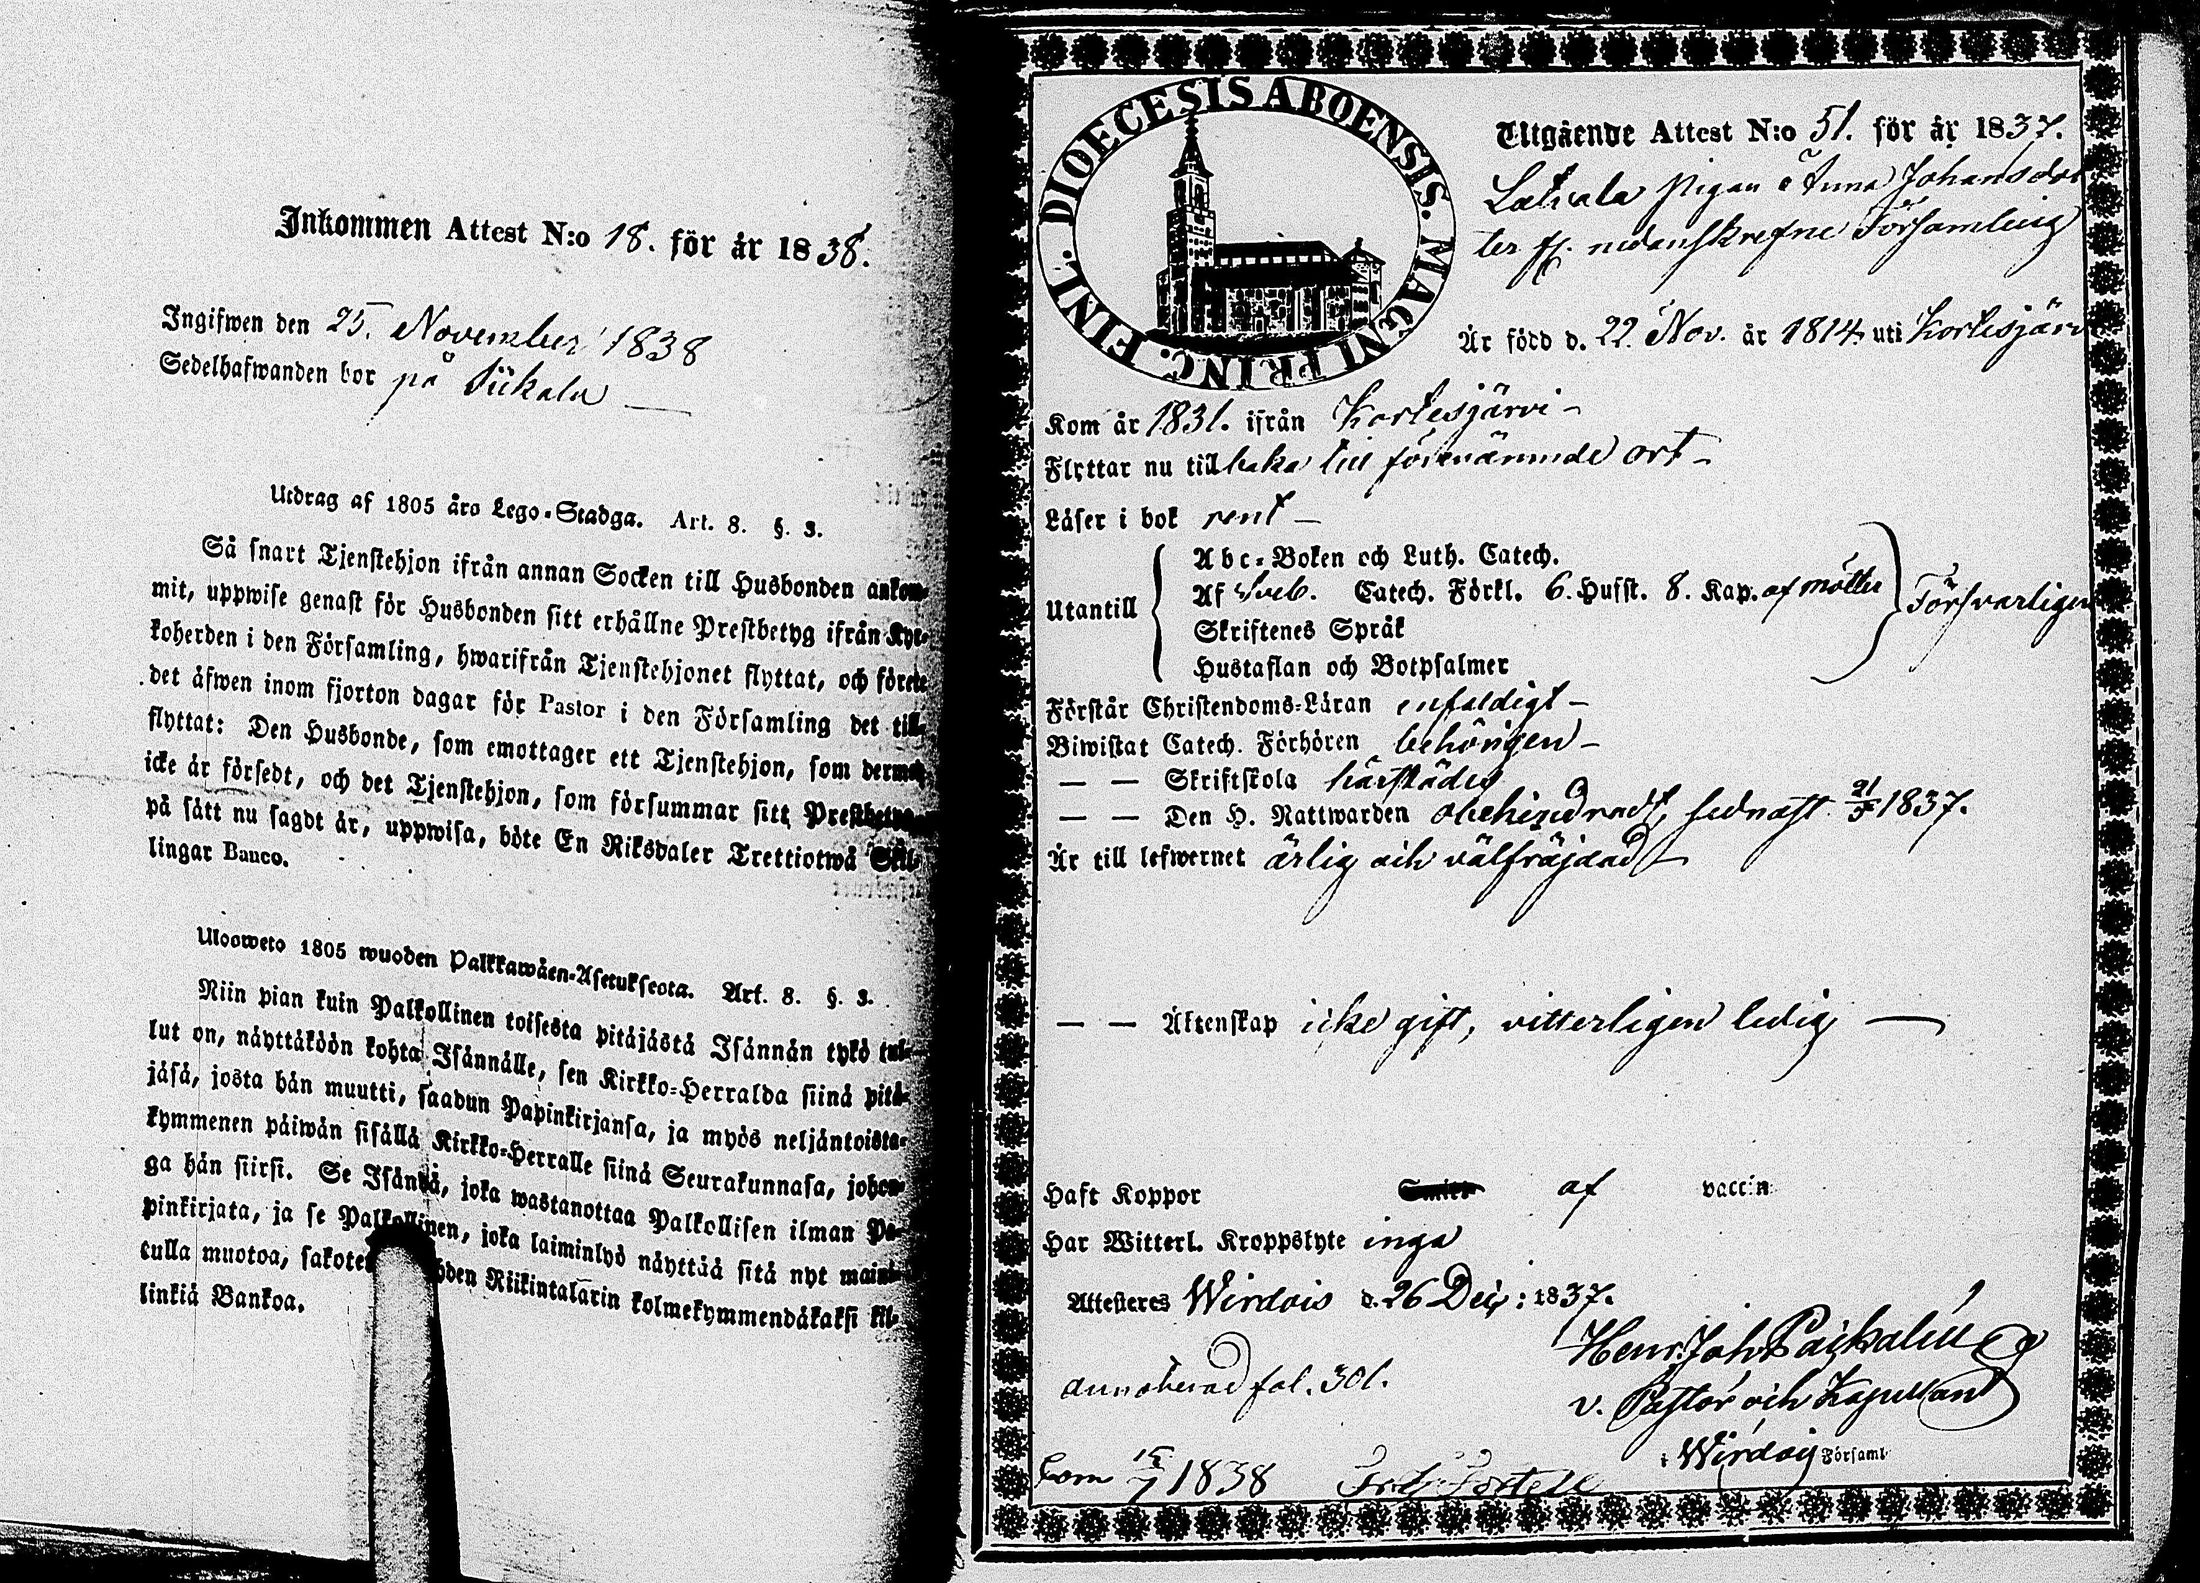 Inkommen Attest N:o 18. för år 1838.
Ingifwen den 25. November 1838
Sedelhafwanden bor på
Utdrag af 1805 års Lego-Stadga. Art. 8. §. 3.
Så snart Tjenstehjon ifrån annan Socken till Husbonden ankom-
mit, uppwise genast för Husbonden sitt erhållne Prestbetyg ifrån Kyr-
koherden i den Församling, hwarifrån Tjenstehjonet flyttat, och förete
det äfwen inom fjorton dagar för Pastor i den Församling det till-
flyttat: Den Husbonde, som emottager ett Tjenstehjon, som dermed
icke är försedt, och det Tjenstehjon, som försummar sitt Prestbetyg
på sätt nu sagdt är, uppwisa, böte En Riksdaler Trettiotwå Skil-
lingar Banco.
Ulosweto 1805 wuoden Palkkawäen-Asetuksesta. Art. 8. §. 3.
Niin pian kuin Palkollinen toisesta pitäjästä Isännän tykö tul-
lut on, näyttäköön kohta Isännälle, sen Kirkko-Herralda siinä pitä-
jäsä, josta hän muutti, saadun Papinkirjansa, ja myös neljäntoista-
kymmenen päiwän sisällä Kirkko-Herralle siinä Seurakunnasa, johon-
ga hän siirsi. Se Isändä, joka wastanottaa Palkollisen ilman Pa-
pinkirjata, ja se Palkollinen, joka laiminlyö näyttää sitä nyt maini-
tulla muotoa, Riikintalarin kolmekymmendäkaksi kil-
linkiä Bankoa.
DIOECESIS ABOENSIS. MAGNI PRINC. FINL.
Utgående Attest N:o 51. för år 1837.
Latvala Pigan Anna Johansdot
ter fr. nedanskrefne Församling
Är född d. 22. Nov. år 1814 uti Kortesjärvi
Kom år 1831. ifrån Kortesjärvi –
Flyttar nu tillbaka till förenämnde ort –
Läser i bok rent –
Utantill
Abc-Boken och Luth. Catech.
Af Sveb. Catech. Förkl. 6. Hufst. 8. Kap. af möller
Skriftenes Språk
Hustaflan och Botpsalmer
Försvarligen
Förstår Christendoms-Läran enfaldigt –
Biwistat Catech. Förhören behörigen –
— — Skriftskola härstädes
— — Den H. Nattwarden obehindradt, sednast 21/5 1837.
Är till lefwernet ärlig och välfräjdad –
— — Äktenskap icke gift, vitterligen ledig —
Haft Koppor af vaccin
Har Witterl. Kroppslyte inga
Attesteres Wirdois d. 26 Dec: 1837.
Henr. Joh.
v. Pastor och Kapellan
i Wirdois Församl.
Annoterad fol. 301.
Kom 15/7 1838